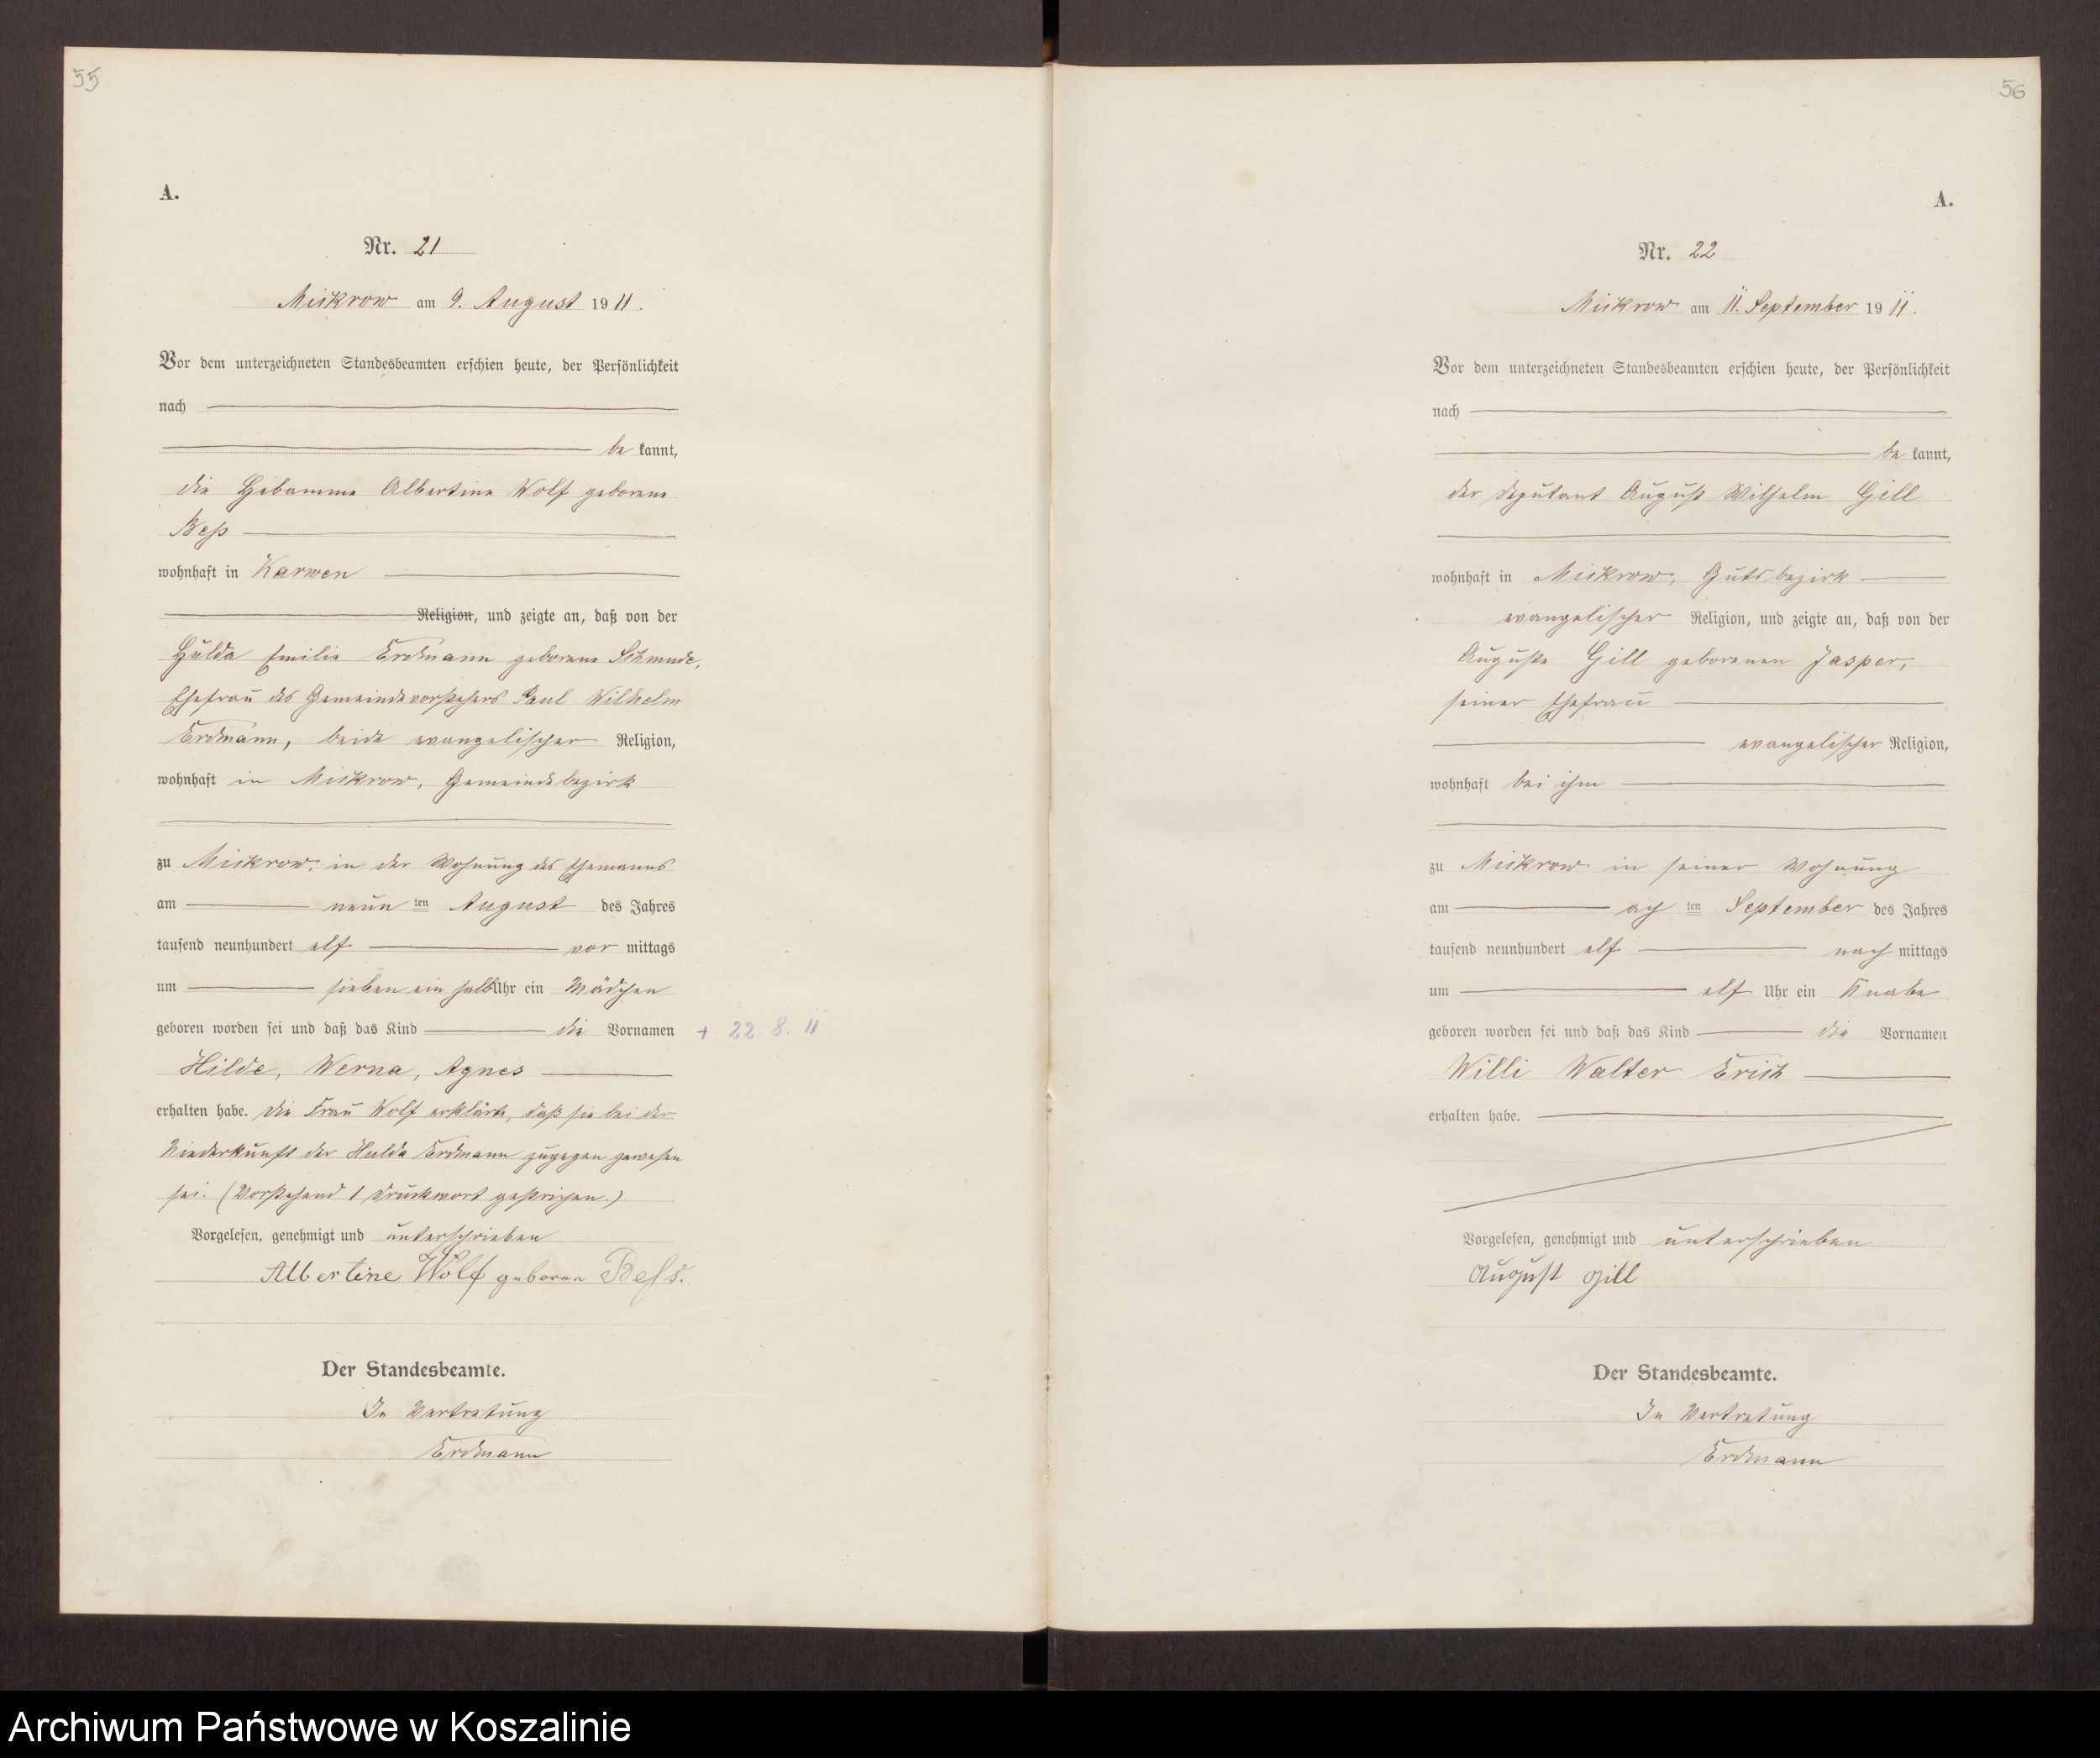 55
A.
Nr. 21
Mickrow am 9. August 1911.
Vor dem unterzeichneten Standesbeamten erschien heute, der Persönlichkeit
nach
be kannt,
die Hebamme Albertine Wolf geborene
Beß
wohnhaft in Karwen
Religion, und zeigte an, daß von der
Hulda Emilie Erdmann geborene Schmude,
Ehefrau des Gemeindevorstehers Paul Wilhelm
Erdmann, beide evangelischer Religion,
wohnhaft in Mickrow, Gemeindebezirk
zu Mickrow, in der Wohnung des Ehemanns
am neun ten August des Jahres
tausend neunhundert elf vor mittags
um sieben ein halb Uhr ein Mädchen
geboren worden sei und daß das Kind die Vornamen + 22. 8. 11
Hilde, Werna, Agnes
erhalten habe. Die Frau Wolf erklärte, daß sie bei der
Niederkunft der Hulda Erdmann zugegen gewesen
sei. (Vorstehend 1 Druckwort gestrichen.)
Vorgelesen, genehmigt und unterschrieben
Albertine Wolf geboren Bess.
Der Standesbeamte.
In Vertretung
Erdmann
56
A.
Nr. 22
Mickrow am 11. September 1911.
Vor dem unterzeichneten Standesbeamten erschien heute, der Persönlichkeit
nach
be kannt,
der Deputant August Wilhelm Gill
wohnhaft in Mickrow, Gutsbezirk
evangelischer Religion, und zeigte an, daß von der
Auguste Gill geborenen Jasper,
seiner Ehefrau
evangelischer Religion,
wohnhaft bei ihm
zu Mickrow in seiner Wohnung
am ach ten September des Jahres
tausend neunhundert elf nach mittags
um elf Uhr ein Knabe
geboren worden sei und daß das Kind die Vornamen
Willi Walter Erich
erhalten habe.
Vorgelesen, genehmigt und unterschrieben
August Gill
Der Standesbeamte.
In Vertretung
Erdmann
Archiwum Państwowe w Koszalinie